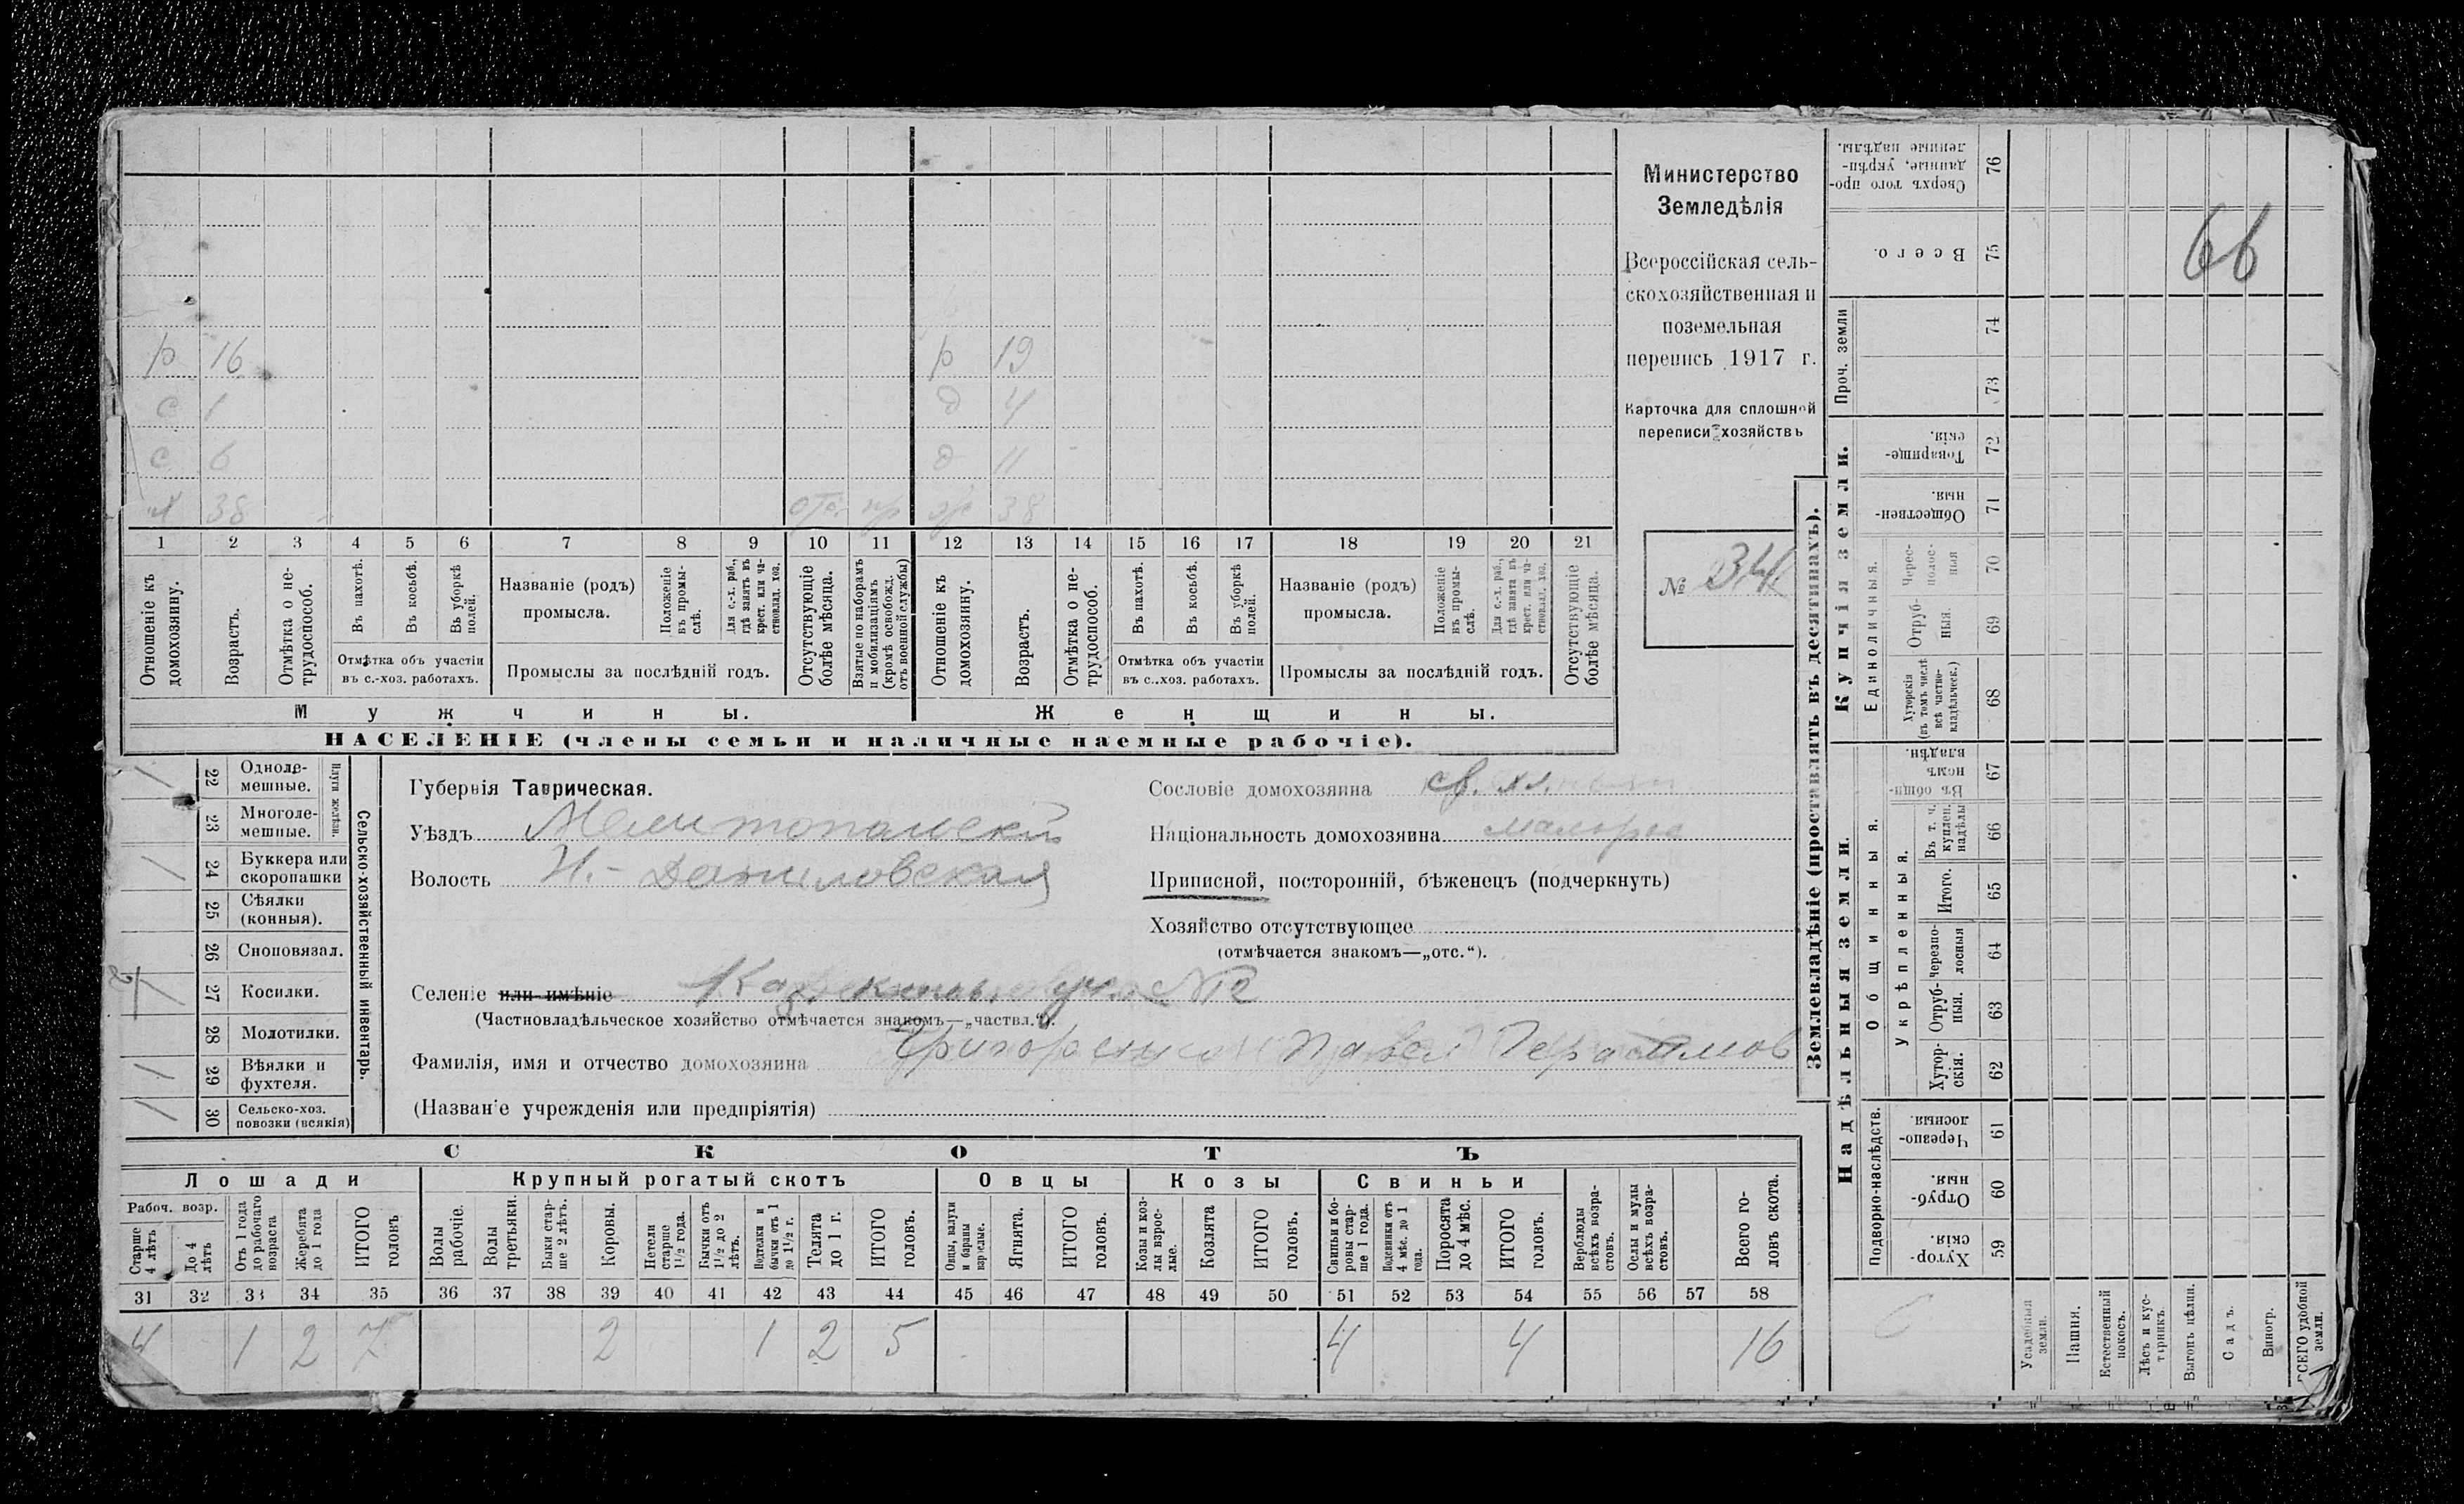 р 16 р 19
с 1 д 4
с 6 д 11
х 38 отс. пр ж 38
1 2 3 4 5 6 7 8 9 10 11 12 13 14 15 16 17 18 19 20 21
Отношеніе къ домохозяину.
Возрастъ.
Отмѣтка о нетрудоспособ.
Въ пахотѣ.
Въ косьбѣ.
Въ уборкѣ полей.
Отмѣтка объ участіи
въ с.-хоз. работахъ.
Названіе (родъ)
промысла.
Положеніе въ промыслѣ.
Для с.-х. раб., гдѣ занятъ въ крест. или частновлад. хоз.
Промыслы за послѣдній годъ.
Отсутствующіе болѣе мѣсяца.
Взятые по наборамъ и мобилизаціямъ (кромѣ освобожд. отъ военной службы)
Отношеніе къ домохозяину.
Возрастъ.
Отмѣтка о нетрудоспособ.
Въ пахотѣ.
Въ косьбѣ.
Въ уборкѣ полей.
Отмѣтка объ участіи
въ с.-хоз. работахъ.
Названіе (родъ)
промысла.
Положеніе въ промыслѣ.
Для с.-х. раб., гдѣ занята въ крест. или частновлад. хоз.
Промыслы за послѣдній годъ.
Отсутствующіе болѣе мѣсяца.
Мужчины.
Женщины.
НАСЕЛЕНІЕ (члены семьи и наличные наемные рабочіе).
Министерство
Земледѣлія
Всероссійская сель-
скохозяйственная и
поземельная
перепись 1917 г.
Карточка для сплошной
переписи хозяйствъ
№ 34
Сельско-хозяйственный инвентарь.
Плуги желѣзн.
/ 22 Одноле-
мешные.
23 Многоле-
мешные.
/ 24 Буккера или
скоропашки
25 Сѣялки
(конныя).
26 Сноповязал.
27 Косилки.
28 Молотилки.
/ 29 Вѣялки и
фухтеля.
/ 30 Сельско-хоз.
повозки (всякія)
Губернія Таврическая.
Уѣздъ Мелитопольскій
Волость Н.-Даниловская
Сословіе домохозяина
Національность домохозяина малорос
Приписной, посторонній, бѣженецъ (подчеркнуть)
Хозяйство отсутствующее
(отмѣчается знакомъ—„отс.“).
Селеніе или имѣніе уч. №2
(Частновладѣльческое хозяйство отмѣчается знакомъ—„частвл.“).
Фамилія, имя и отчество домохозяина Григоренко Павел Герасимов
(Названіе учрежденія или предпріятія)
СКОТЪ
Лошади
Крупный рогатый скотъ
Овцы
Козы
Свиньи
Рабоч. возр.
Старше 4 лѣтъ
До 4 лѣтъ
Отъ 1 года до рабочаго возраста
Жеребята до 1 года
ИТОГО головъ
Волы рабочіе.
Волы третьяки.
Быки старше 2 лѣтъ.
Коровы.
Нетели старше 1½ года.
Бычки отъ 1½ до 2 лѣтъ.
Подтелки и бычки отъ 1 до 1½ г.
Телята до 1 г.
ИТОГО головъ.
Овцы, валухи и бараны взрослые.
Ягнята.
ИТОГО головъ.
Козы и козлы взрослые.
Козлята
ИТОГО головъ.
Свиньи и боровы старше 1 года.
Подсвинки отъ 4 мѣс. до 1 года.
Поросята до 4 мѣс.
ИТОГО головъ.
Верблюды всѣхъ возрастовъ.
Ослы и мулы всѣхъ возрастовъ.
Всего головъ скота.
31 32 33 34 35 36 37 38 39 40 41 42 43 44 45 46 47 48 49 50 51 52 53 54 55 56 57 58
4 1 2 7 2 1 2 5 4 4 16
66
Землевладѣніе (проставлять въ десятинахъ).
Купчія земли.
Надѣльныя земли.
Сверхъ того проданные, укрѣпленные надѣлы. 76
Всего. 75
Проч. земли
74
73
Товарищескія. 72
Общественныя. 71
Единоличныя.
Черезполосныя 70
Отрубныя. 69
Хуторскія (въ томъ числѣ всѣ частновладѣльческ.) 68
Общинныя.
Въ общинномъ владѣн. 67
Укрѣпленныя.
Въ т. ч. куплен. надѣлы 66
Итого. 65
Черезполосныя 64
Отрубныя. 63
Хуторскія. 62
Подворно-наслѣдств.
Черезполосныя 61
Отрубныя. 60
Хуторскія. 59
Усадебная земли.
Пашня.
Естественный покосъ.
Лѣсъ и кустарникъ.
Выгонъ цѣлин.
Садъ.
Виногр.
ВСЕГО удобной земли.